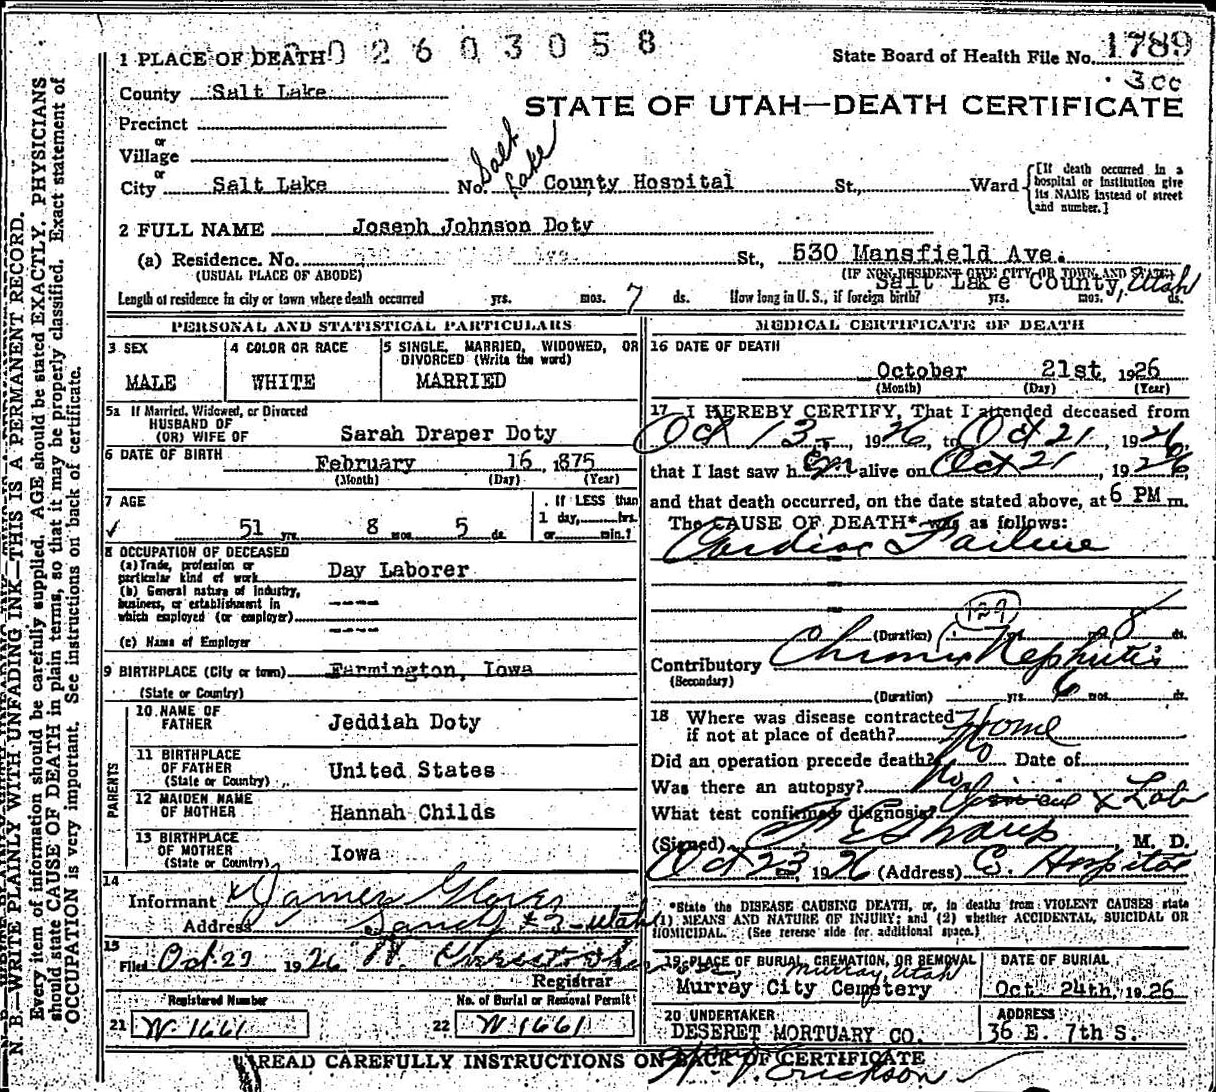 02603058
1 PLACE OF DEATH
State Board of Health File No. 1789
3cc
County Salt Lake
STATE OF UTAH—DEATH CERTIFICATE
Precinct
or
Village
or
City Salt Lake No. Salt Lake County Hospital St., Ward
[If death occurred in a hospital or institution give its NAME instead of street and number.]
2 FULL NAME Joseph Johnson Doty
(a) Residence. No. St., 530 Mansfield Ave.
(USUAL PLACE OF ABODE) (IF NON-RESIDENT GIVE CITY OR TOWN AND STATE)
Salt Lake County, Utah
Length of residence in city or town where death occurred yrs. mos. 7 ds. How long in U. S., if foreign birth? yrs. mos. ds.
PERSONAL AND STATISTICAL PARTICULARS
3 SEX
MALE
4 COLOR OR RACE
WHITE
5 SINGLE, MARRIED, WIDOWED, OR
DIVORCED (Write the word)
MARRIED
5a If Married, Widowed, or Divorced
HUSBAND OF
(OR) WIFE OF Sarah Draper Doty
6 DATE OF BIRTH February 16, 1875
(Month) (Day) (Year)
7 AGE
51 yrs. 8 mos. 5 ds.
If LESS than
1 day, hrs.
or min.?
8 OCCUPATION OF DECEASED
(a) Trade, profession or
particular kind of work Day Laborer
(b) General nature of Industry,
business, or establishment in
which employed (or employer) ----
(c) Name of Employer ----
9 BIRTHPLACE (City or town) Farmington, Iowa
(State or Country)
PARENTS
10 NAME OF
FATHER Jeddiah Doty
11 BIRTHPLACE
OF FATHER
(State or Country) United States
12 MAIDEN NAME
OF MOTHER Hannah Childs
13 BIRTHPLACE
OF MOTHER
(State or Country) Iowa
14
Informant x James Glover
Address Sandy #3 - Utah
15
Filed Oct 23 1926
Registrar
Registered Number
21 W 1661
No. of Burial or Removal Permit
22 W 1661
MEDICAL CERTIFICATE OF DEATH
16 DATE OF DEATH
October 21st, 1926
(Month) (Day) (Year)
17 I HEREBY CERTIFY, That I attended deceased from
Oct 13, 1926, to Oct 21, 1926
that I last saw him alive on Oct 21, 1926,
and that death occurred, on the date stated above, at 6 PM m.
The CAUSE OF DEATH* was as follows:
Cardiac Failure
129
(Duration) 8 ds.
Contributory Chronic Nephritis
(Secondary)
(Duration) yrs. 6 mos. ds.
18 Where was disease contracted
if not at place of death? Home
Did an operation precede death? No Date of
Was there an autopsy? No
What test confirmed diagnosis? & Lab
(Signed) Sharp, M. D.
Oct 23, 1926 (Address) C. Hospital
*State the DISEASE CAUSING DEATH, or, in deaths from VIOLENT CAUSES state
(1) MEANS AND NATURE OF INJURY; and (2) whether ACCIDENTAL, SUICIDAL OR
HOMICIDAL. (See reverse side for additional space.)
19 PLACE OF BURIAL, CREMATION, OR REMOVAL
Murray, Utah
Murray City Cemetery
DATE OF BURIAL
Oct. 24th, 1926
20 UNDERTAKER
DESERET MORTUARY CO.
ADDRESS
36 E. 7th S.
Erickson
READ CAREFULLY INSTRUCTIONS ON BACK OF CERTIFICATE
N. B.—WRITE PLAINLY WITH UNFADING INK—THIS IS A PERMANENT RECORD.
Every item of information should be carefully supplied. AGE should be stated EXACTLY. PHYSICIANS
should state CAUSE OF DEATH in plain terms, so that it may be properly classified. Exact statement of
OCCUPATION is very important. See instructions on back of certificate.